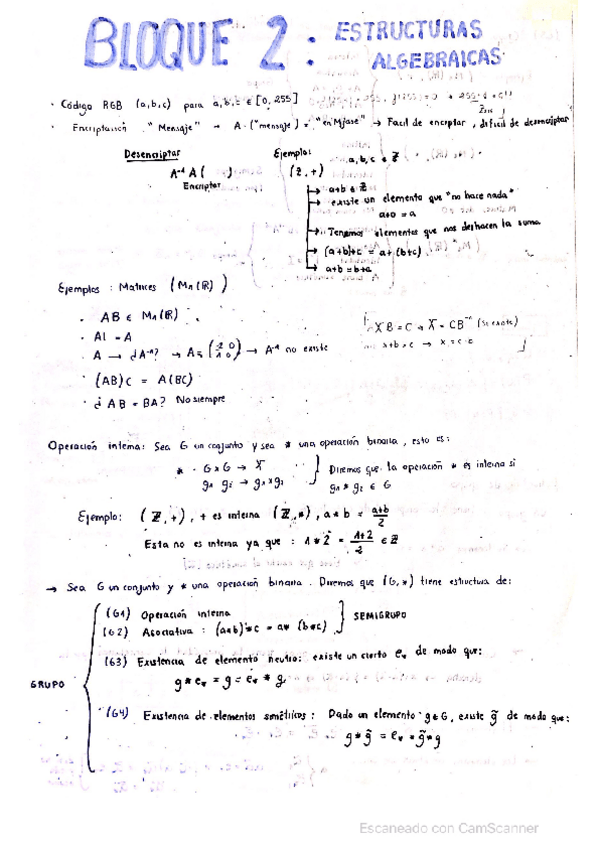 BLOQUE 2: ESTRUCTURAS ALGEBRAICAS
· Código RGB (a,b,c) para a,b,c ∈ [0,255]
· Encriptación "Mensaje" → A·("mensaje") = "enMjase" → Facil de encriptar, dificil de desencriptar
Desencriptar
A⁻¹ A( )
Encriptar
Ejemplo: a,b,c ∈ ℤ
(ℤ,+)
→ a+b ∈ ℤ
→ existe un elemento que "no hace nada"
a+0 = a
→ Tenemos elementos que nos deshacen la suma
→ (a+b)+c = a+(b+c)
→ a+b = b+a
Ejemplos: Matrices (Mn(ℝ))
· AB ∈ Mn(ℝ)
· AI = A
· A → ¿A⁻¹? → A = → A⁻¹ no existe
· (AB)C = A(BC)
· ¿AB = BA? No siempre
XB = C → X = CB⁻¹ (Si existe)
x+b = c →
Operación interna: Sea G un conjunto y sea * una operación binaria, esto es:
* · G×G → X
g₁ g₂ → g₁*g₂
Diremos que la operación * es interna si
g₁*g₂ ∈ G
Ejemplo: (ℤ,+), + es interna (ℤ,*), a*b = (a+b)/2
Esta no es interna ya que: 1*2 = (1+2)/2 ∈ ℤ
→ Sea G un conjunto y * una operación binaria. Diremos que (G,*) tiene estructura de:
GRUPO
(G1) Operación interna
(G2) Asociativa: (a*b)*c = a*(b*c)
SEMIGRUPO
(G3) Existencia de elemento neutro: existe un cierto e* de modo que:
g*e* = g = e* * g
(G4) Existencia de elementos simétricos: Dado un elemento g∈G, existe g̃ de modo que:
g*g̃ = e* = g̃*g
Escaneado con CamScanner